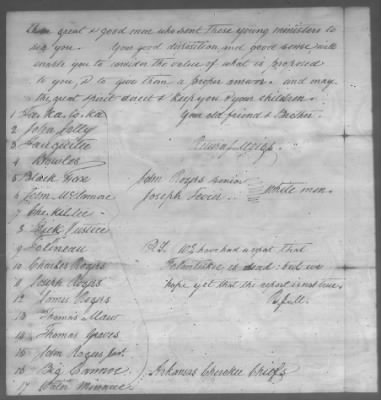 these great & good men who sent these young ministers to
see you. Your good disposition and good sense will
enable you to consider the value of what is proposed
to you, & to give them a proper answer. and may
the great spirit direct & keep you & your children.
1 Ta.Ka.to.ka Your old friend & Brother.
2 John Jolly
3 Return J. Meigs.
4 Bowles
5 Black Fox John Rogers senior
6 John McLemore Joseph Sevier White men.
7
8 Dick Justice
9 P.S. We have had a report that
10 Charles Rogers is dead: but we
11 Joseph Rogers hope yet that the report is not true.
12 James Rogers
13 Thomas Maw
14 Thomas Graves
15 John Rogers Jun.
16 Big Arkansas Cherokee Chiefs
17